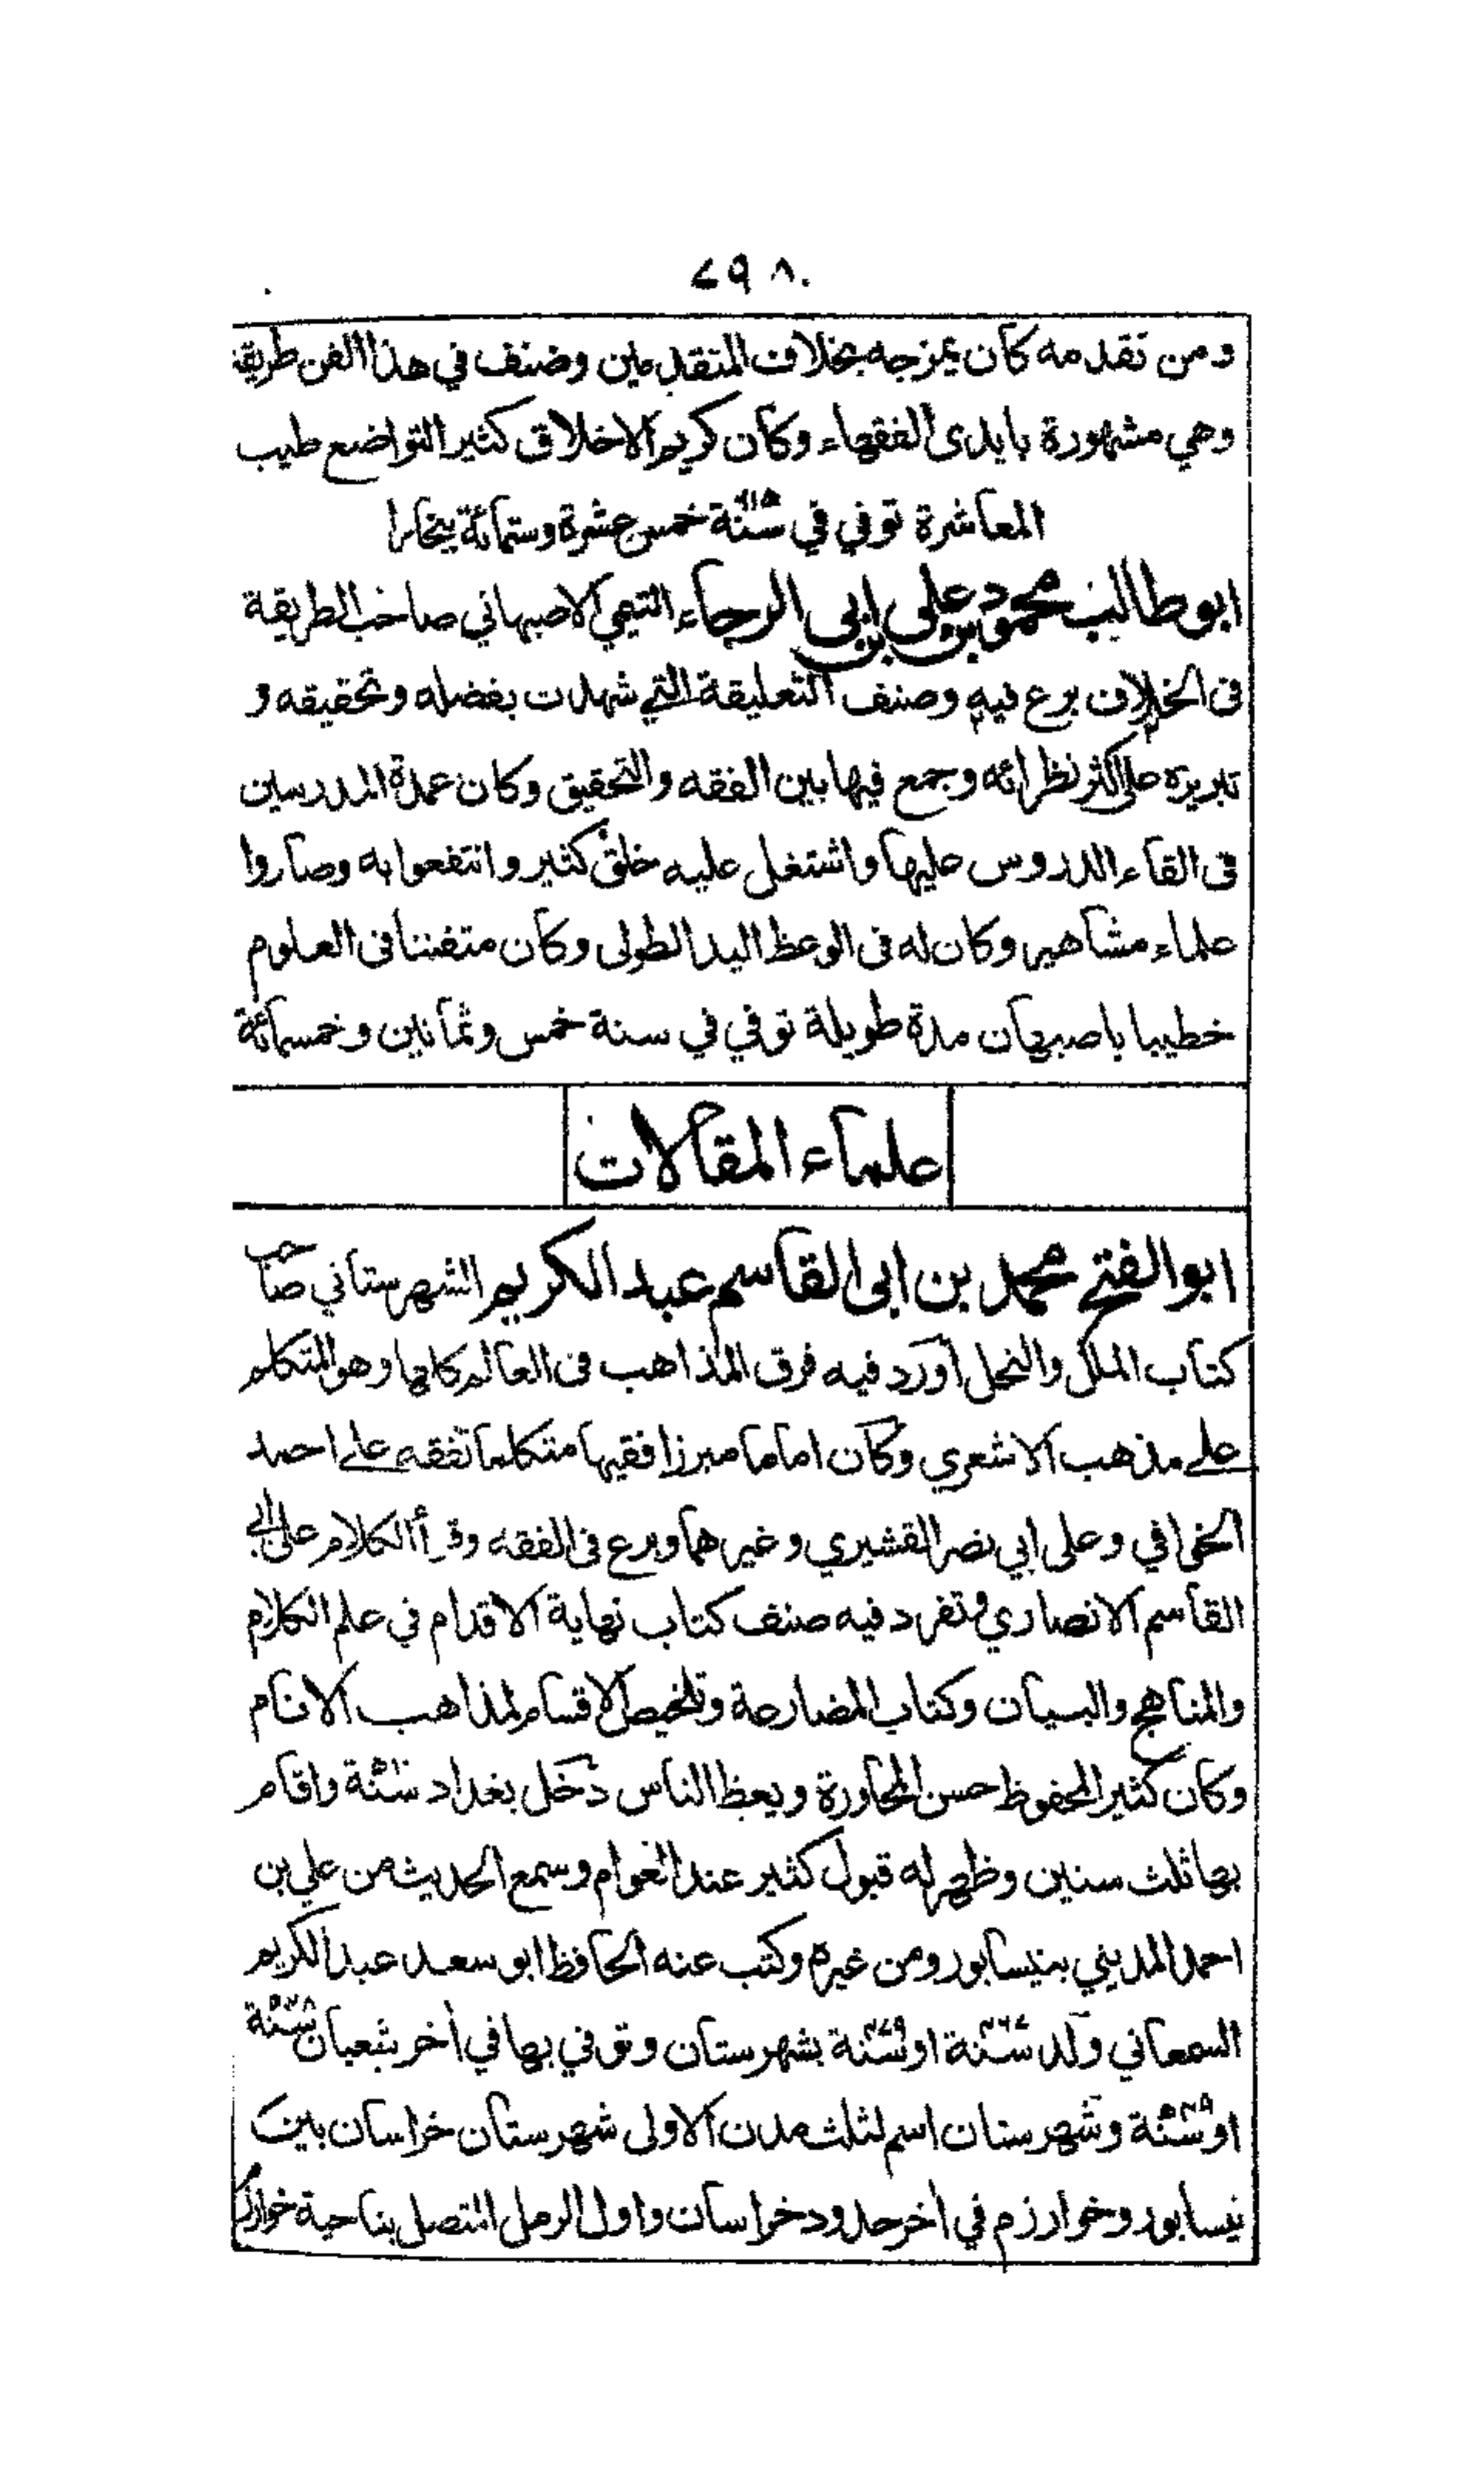 ٧٩٨
ومن تقدمه كان يمزجه بخلاف المتقدمين وصنف في هذا الفن طريقة
وهي مشهورة بايدى الفقهاء وكان كريم الاخلاق كثير التواضع طيب
المعاشرة توفي في سنة خمس عشرة وستمائة ببخارا
ابو طالب محمود بن علي بن ابى الرجاء التيمي الاصبهاني صاحب الطريقة
فى الخلاف برع فيه وصنف التعليقة التي شهدت بفضله وتحقيقه و
تبريزه على اكثر نظرائه وجمع فيها بين الفقه والتحقيق وكان عمدة المدرسين
فى القاء الدروس عليها واشتغل عليه خلق كثير وانتفعوا به وصاروا
علماء مشاهير وكان له فى الوعظ اليد الطولى وكان متفننا فى العلوم
خطيبا باصبهان مدة طويلة توفي في سنة خمس وثمانين وخمسمائة
علماء المقالات
ابو الفتح محمد بن ابى القاسم عبد الكريم الشهرستاني صاحب
كتاب الملل والنحل اورد فيه فرق المذاهب فى العالم كلها وهو المتكلم
على مذهب الاشعري وكان اماما مبرزا فقيها متكلما تفقه على احمد
الخوافي وعلى ابي نصر القشيري وغيرهما وبرع فى الفقه وقرأ الكلام على ابي
القاسم الانصاري وتفرد فيه صنف كتاب نهاية الاقدام في علم الكلام
والمناهج والبيان وكتاب المضارعة وتلخيص الاقسام لمذاهب الانام
وكان كثير المحفوظ حسن المحاورة ويعظ الناس دخل بغداد سنة واقام
بها ثلث سنين وظهر له قبول كثير عند العوام وسمع الحديث من علي بن
احمد المديني بنيسابور ومن غيره وكتب عنه الحافظ ابو سعد عبد الكريم
السمعاني ولد سنة او سنة بشهرستان وتوفي بها في اخر شعبان سنة
او سنة وشهرستان اسم لثلث مدن الاولى شهرستان خراسان بين
نيسابور وخوارزم في اخر حدود خراسان واول الرمل المتصل بناحية خوارزم